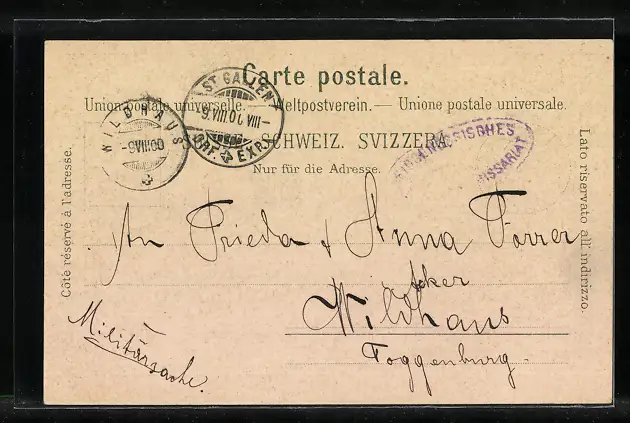 Carte postale.
Union postale universelle. — Weltpostverein. — Unione postale universale.
SCHWEIZ. SVIZZERA
Nur für die Adresse.
Côté réservé à l'adresse.
Lato riservato all' indirizzo.
WILDHAUS
-9.VIII.00
ST. GALLEN
-9.VIII.00 VIII-
BRF. EXP.
An Frieda & Anna Forrer
Acker
Wildhaus
Toggenburg.
Militärsache.